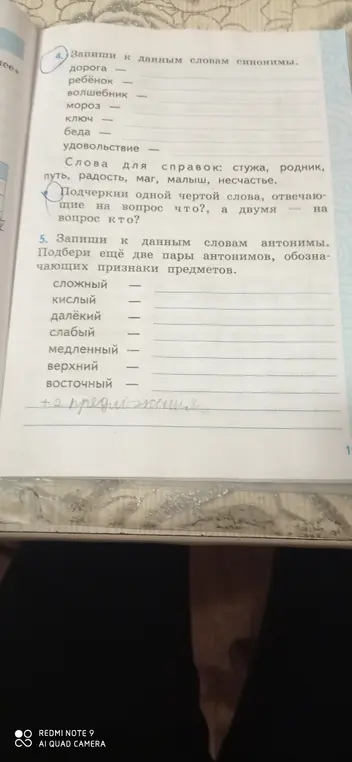 4. Запиши к данным словам синонимы.
дорога —
ребёнок —
волшебник —
мороз —
ключ —
беда —
удовольствие —
Слова для справок: стужа, родник,
путь, радость, маг, малыш, несчастье.
Подчеркни одной чертой слова, отвечаю-
щие на вопрос что?, а двумя — на
вопрос кто?
5. Запиши к данным словам антонимы.
Подбери ещё две пары антонимов, обозна-
чающих признаки предметов.
сложный —
кислый —
далёкий —
слабый —
медленный —
верхний —
восточный —
+2 предложения
REDMI NOTE 9
AI QUAD CAMERA